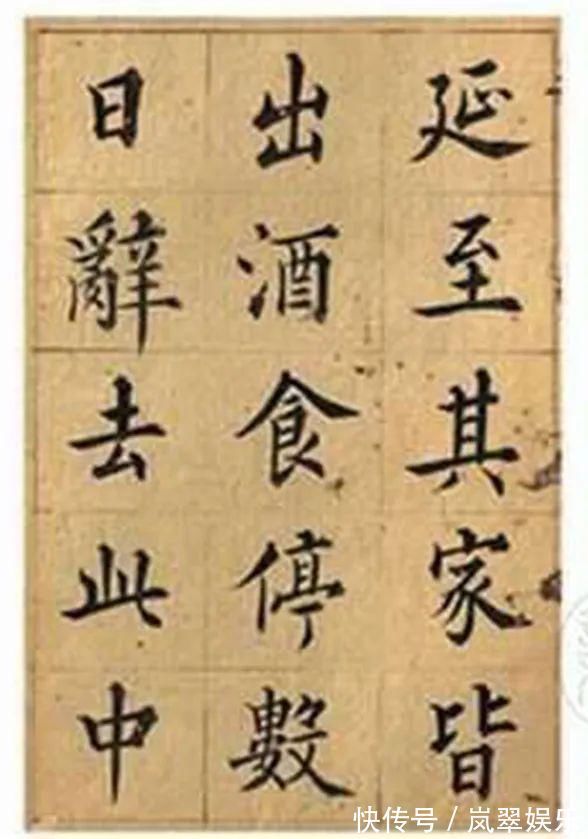 延至其家皆
出酒食停數
日辭去此中
快传号/岚翠娱乐